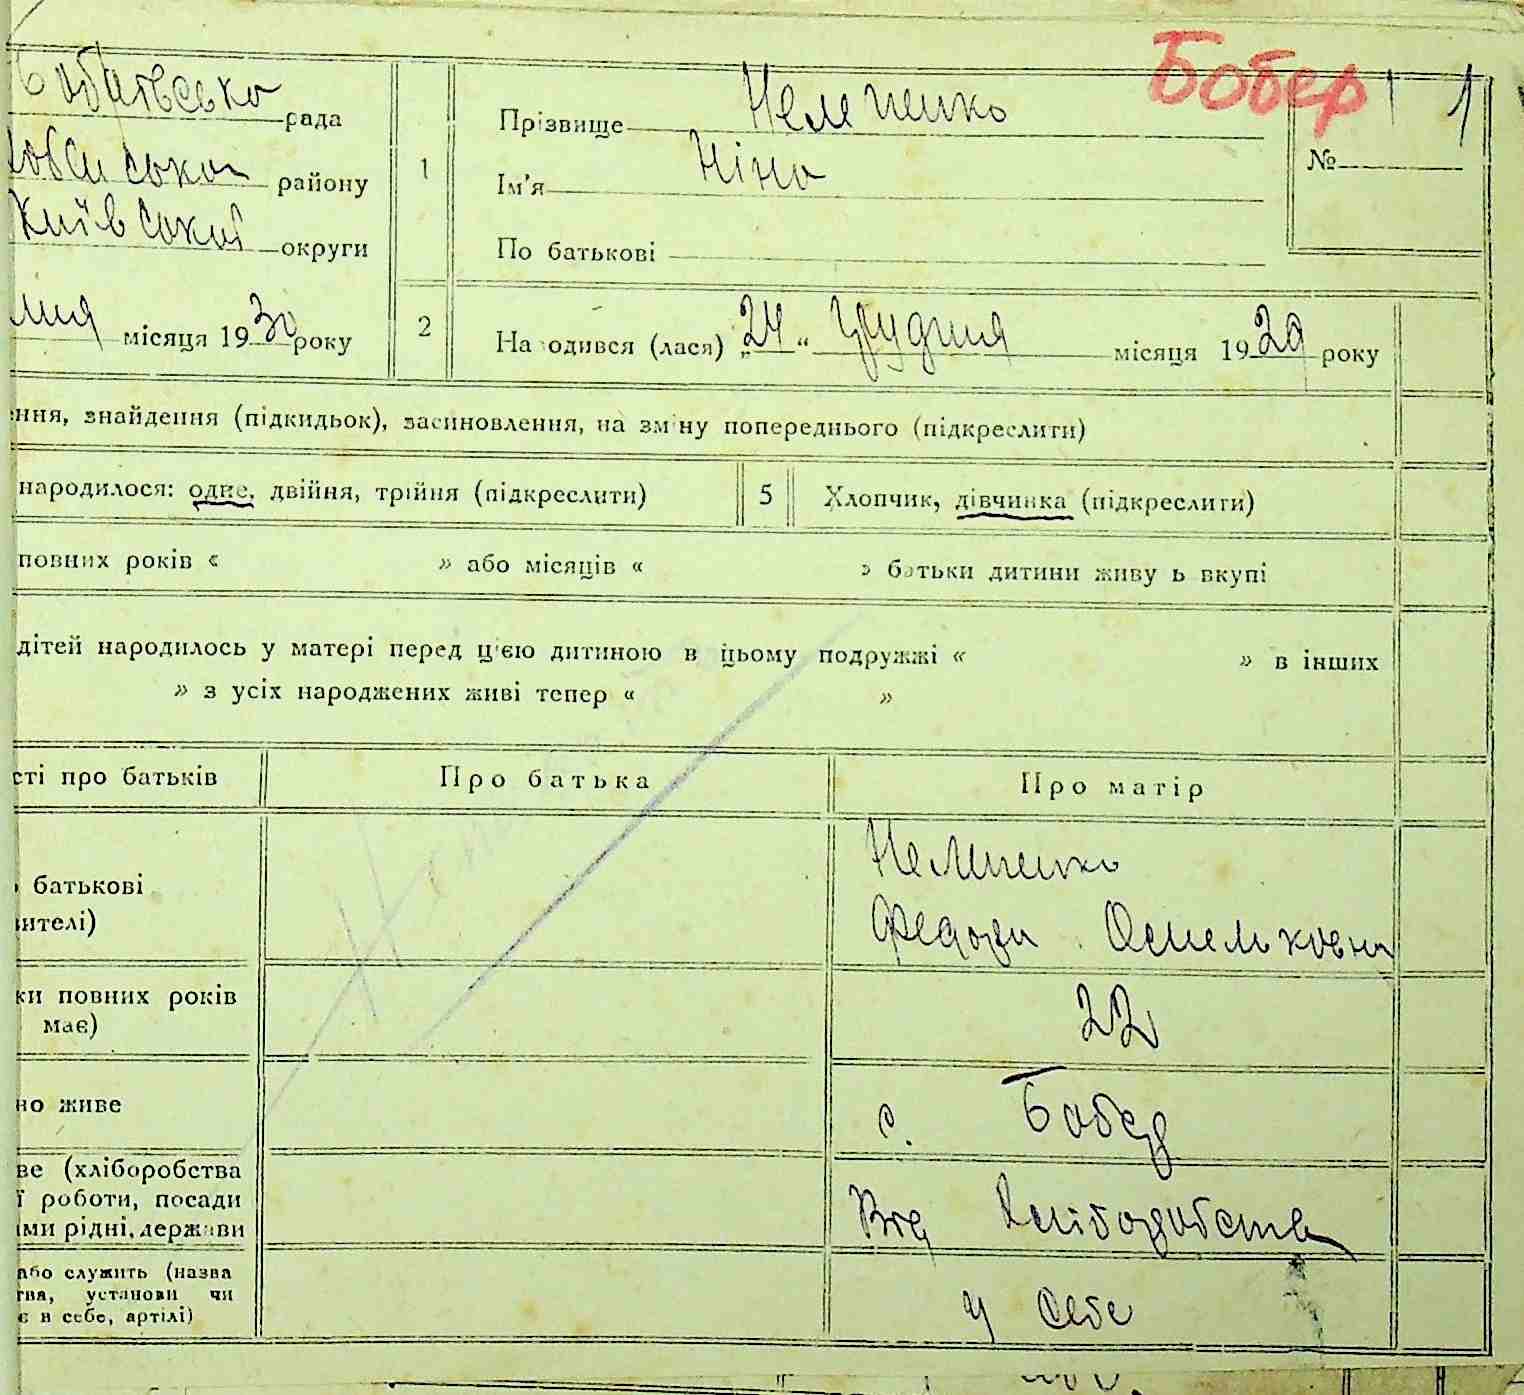 Бобер 1
рада
району
Київської округи
місяця 1930 року
1
Прізвище
Ім'я Ніна
По батькові
№
2
На одився (лася) „24“ грудня місяця 1929 року
ння, знайдення (підкидьок), засиновлення, на зм ну попереднього (підкреслити)
народилося: одне, двійня, трійня (підкреслити)
5
Хлопчик, дівчинка (підкреслити)
повних років « » або місяців « » батьки дитини живу ь вкупі
дітей народилось у матері перед цією дитиною в цьому подружжі « » в інших
» з усіх народжених живі тепер « »
сті про батьків
Про батька
Про матір
батькові
ителі)
Федора Омельковна
ки повних років
має)
22
но живе
с. Бобер
ве (хліборобства
ї роботи, посади
ми рідні, держави
Від хліборобства
або служить (назва
тва, установи чи
є в себе, артілі)
у себе